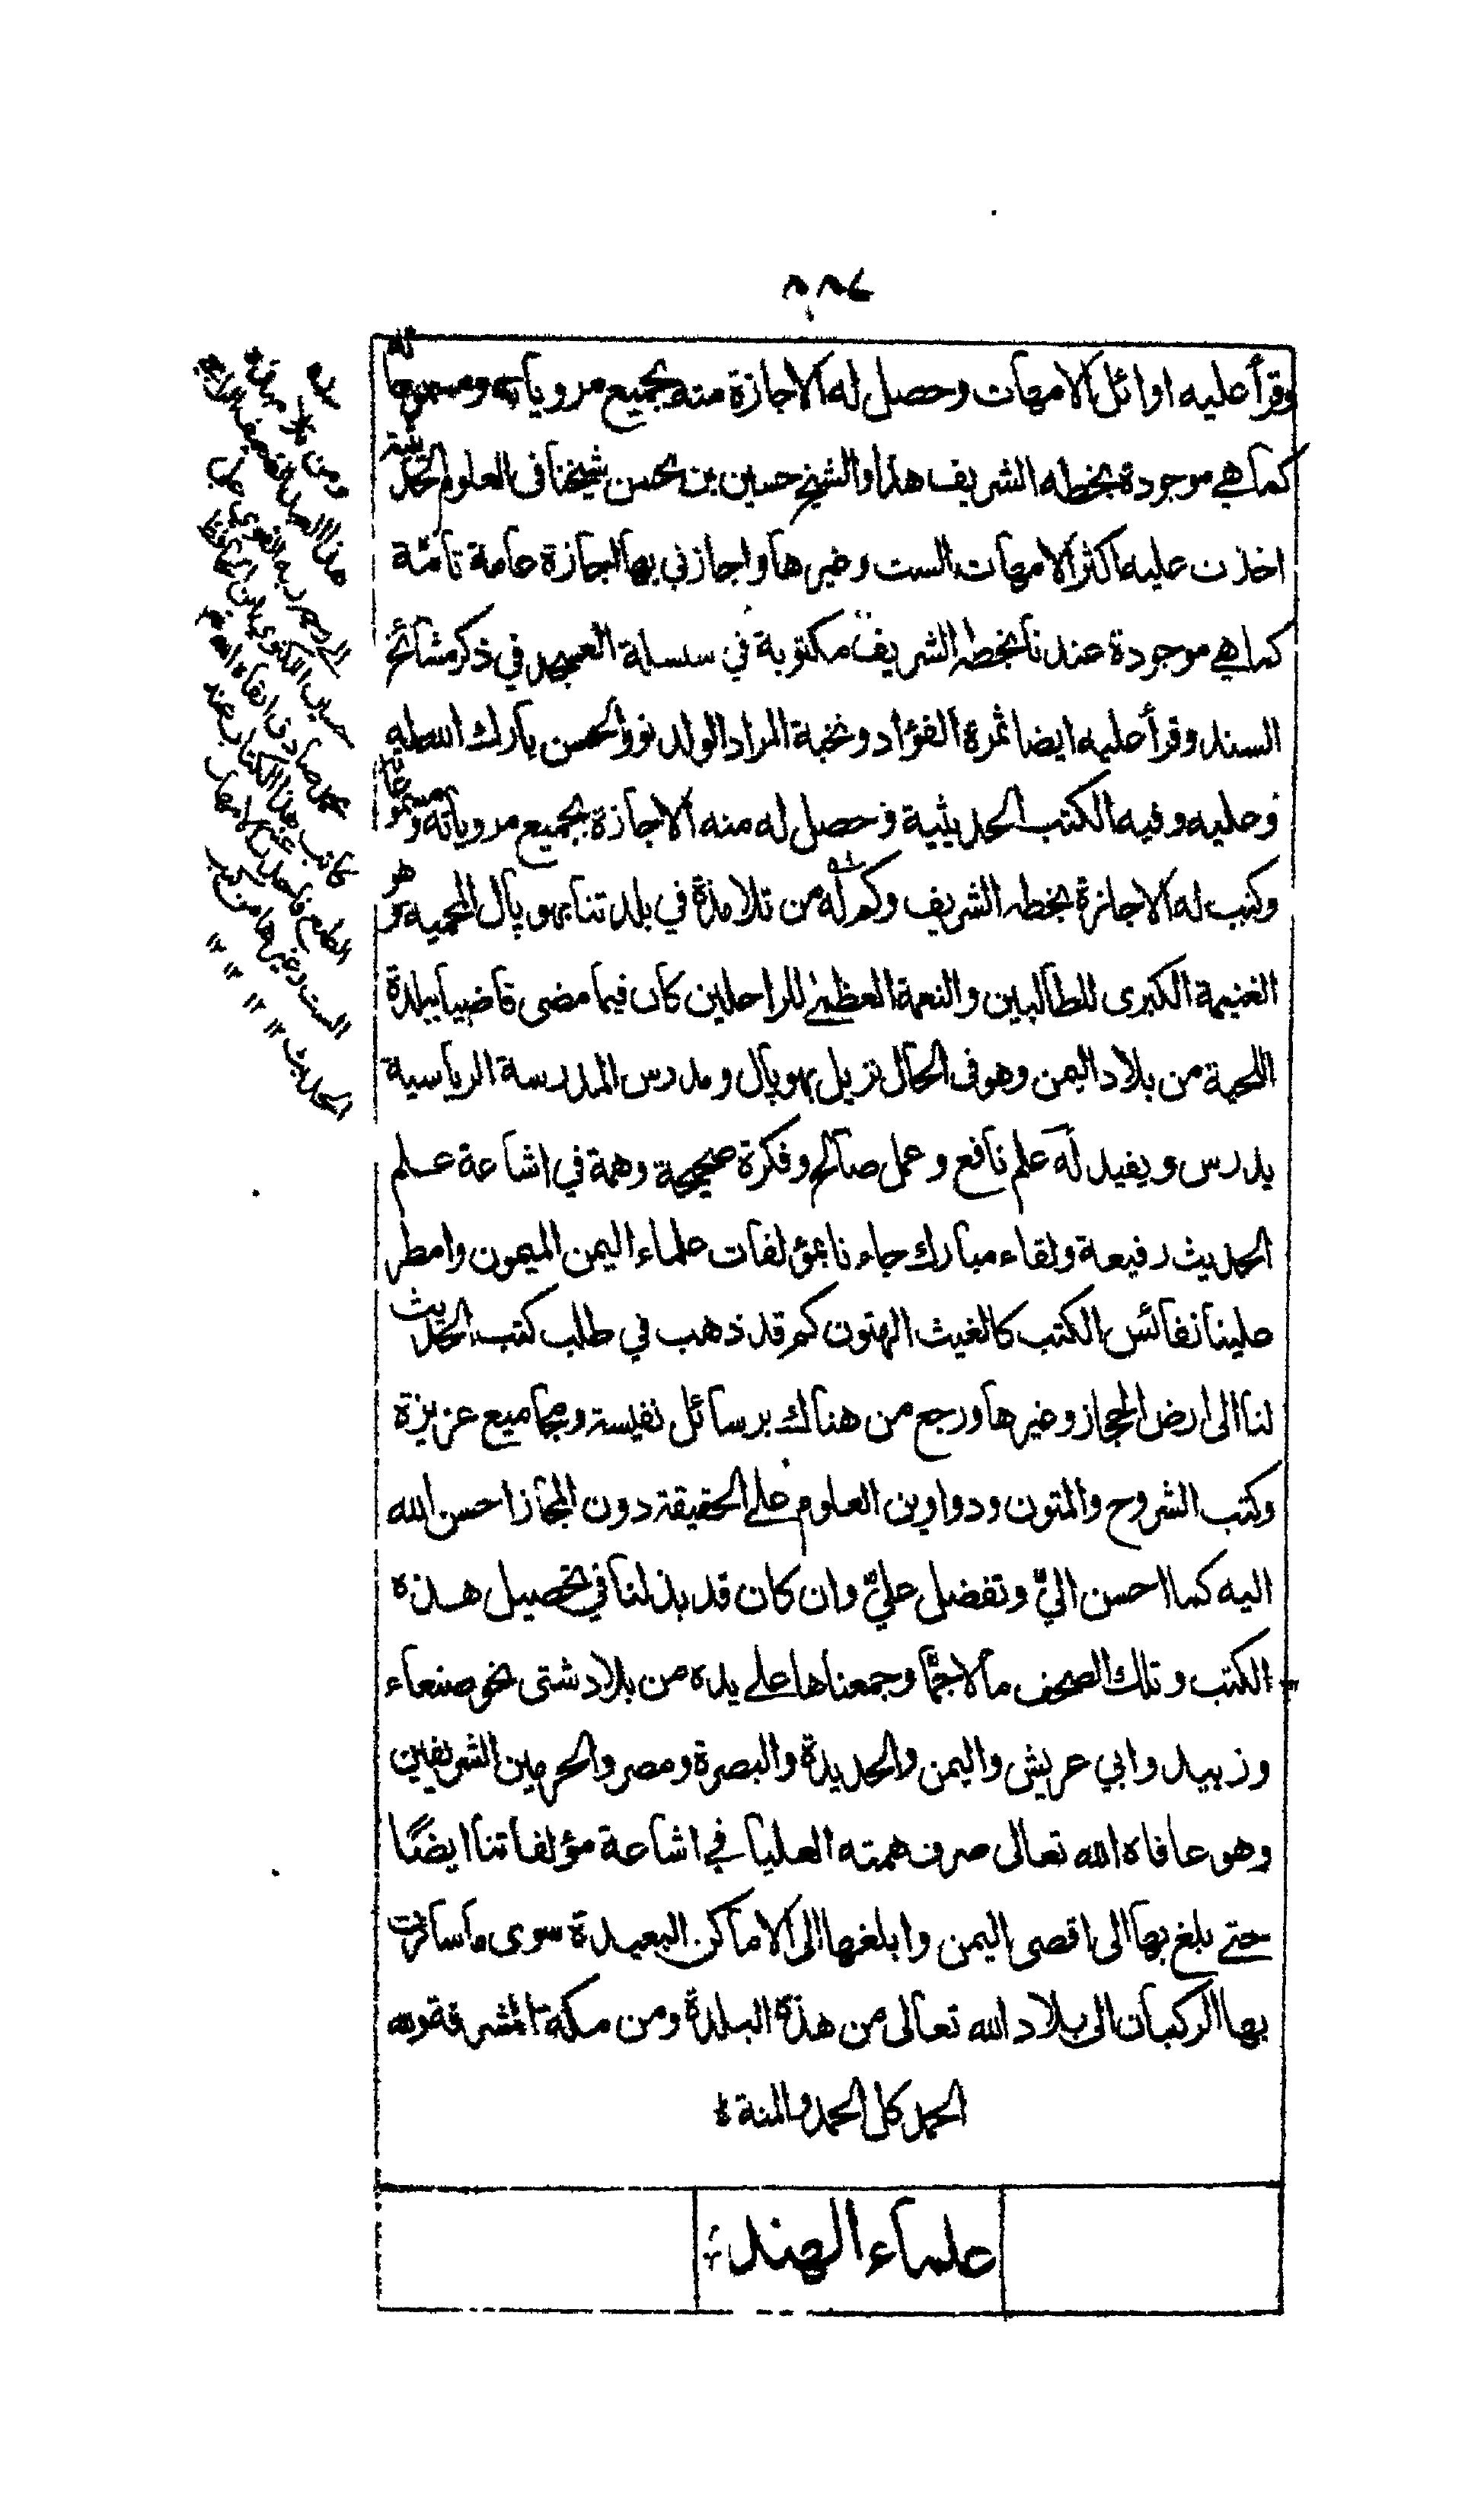 ٨٨٤
وقرأ عليه اوائل الامهات وحصل له الاجازة منه بجميع مروياته ومسموعاته
كما هي موجودة بخطه الشريف هذا والشيخ حسين بن محسن شيخنا فى العلوم الحديثية
اخذت عليه اكثر الامهات الست وغيرها واجازني بها اجازة عامة تامّة
كما هي موجودة عندنا بخطه الشريف مكتوبة في سلسلة العسجد في ذكر مشائخ
السند وقرأ عليه ايضا ثمرة الفؤاد ونخبة المراد الولد نور الحسن بارك الله له
وعليه وفيه الكتب الحديثية وحصل له منه الاجازة بجميع مروياته ومسموعاته
وكتب له الاجازة بخطه الشريف وكم له من تلامذة في بلدتنا بهوپال المحمية وهو
الغنيمة الكبرى للطالبين والنعمة العظيمة للراحلين كان فيما مضى قاضيا ببلدة
اللحية من بلاد اليمن وهو فى الحال نزيل بهوپال ومدرس المدرسة الرياسية
يدرس ويفيد له علم نافع وعمل صالح وفكرة صحيحة وهمة في اشاعة علم
الحديث رفيعة ولقاء مبارك جاءنا بمؤلفات علماء اليمن الميمون وامطر
علينا نفائس الكتب كالغيث الهتون كم قد ذهب في طلب كتب الحديث
لنا الى ارض الحجاز وغيرها ورجع من هناك برسائل نفيسة ومجاميع عزيزة
وكتب الشروح والمتون ودواوين العلوم على الحقيقة دون المجاز احسن الله
اليه كما احسن اليّ وتفضل عليّ وان كان قد بذلنا في تحصيل هذه
الكتب وتلك الصحف مالا جمّا وجمعناها على يده من بلاد شتى نحو صنعاء
وزبيد وابي عريش واليمن والحديدة والبصرة ومصر والحرمين الشريفين
وهو عافاه الله تعالى صرف همته العليا في اشاعة مؤلفاتنا ايضًا
حتى بلغ بها الى اقصى اليمن وابلغها الى الاماكن البعيدة سوى ما سارت
بها الركبان الى بلاد الله تعالى من هذه البلدة ومن مكة المشرفة ولله
الحمد كل الحمد والمنة
علماء الهند
ومن تلامذته
كاتب هذا الكتاب عبد
الست وغيرها من كتب
الحديث